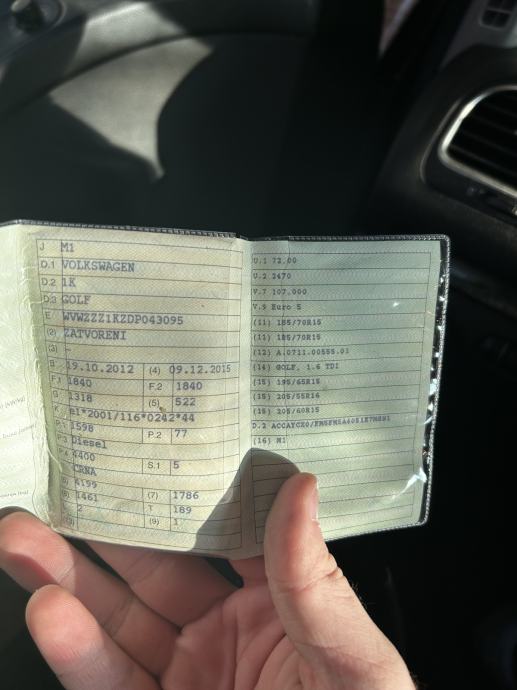 J M1
D.1 VOLKSWAGEN
D.2 1K
D.3 GOLF
E WVWZZZ1KZDP043095
(2) ZATVORENI
(3)
B 19.10.2012 (4) 09.12.2015
F.1 1840 F.2 1840
G 1318 (5) 522
K e1*2001/116*0242*44
P.1 1598 P.2 77
P.3 Diesel
P.4 4400
CRNA S.1 5
(6) 4199
(8) 1461 (7) 1786
2 T 189
(9) 1
U.1 72.00
U.2 2470
V.7 107.000
V.9 Euro 5
(11) 185/70R15
(11) 185/70R15
(12) A.0711.00555.01
(14) GOLF, 1.6 TDI
(15) 195/65R15
(15) 205/55R16
(15) 205/60R15
D.2
(16) M1